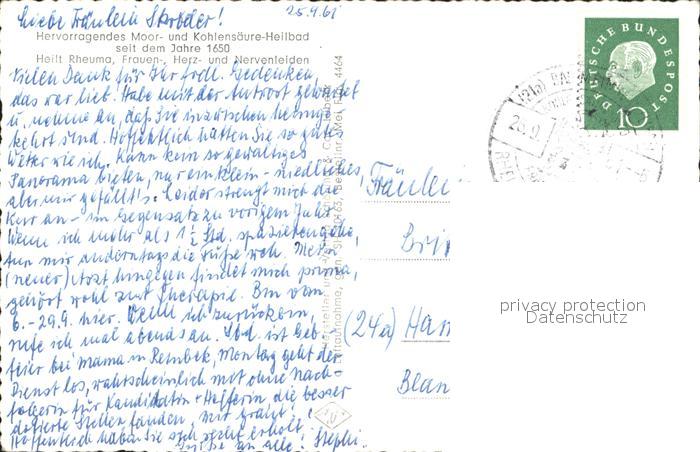 Liebe Fräulein Skröder!
25.9.61
Hervorragendes Moor- und Kohlensäure-Heilbad
seit dem Jahre 1650
Heilt Rheuma, Frauen-, Herz- und Nervenleiden
Vielen Dank für Ihr frdl. Gedenken,
das war lieb. Habe mit der Antwort gewartet
u. nehme an, daß Sie inzwischen heimge-
kehrt sind. Hoffentlich hatten Sie so gutes
Wetter wie ich. Kann kein so gewaltiges
Panorama bieten, nur ein klein - niedliches,
aber mir gefällt's. Leider strengt mich die
Kur an - im Gegensatz zu vorigem Jahr.
Wenn ich mehr als 1½ Std. spazierengehe,
tun mir anderntags die Füße weh. Mein
(neuer) Arzt hingegen findet mich prima,
gehört wohl zur Therapie. Bin vom
6.-29.9. hier. Wenn ich zurückkomm,
rufe ich mal abends an. Sbd. ist Geb.-
feier bei Mama in Reinbek, Montag geht der
Dienst los, wahrscheinlich mit ohne Nach-
folgerin für Kandidatin + Helferin, die besser
dotierte Stellen fanden. Mir graut!
Hoffentlich haben Sie sich recht erholt.
Grüße an alle! Stephi.
DEUTSCHE BUNDESPOST
10
Fräulei
Bri
(24a) Ham
Blan
4464
privacy protection
Datenschutz